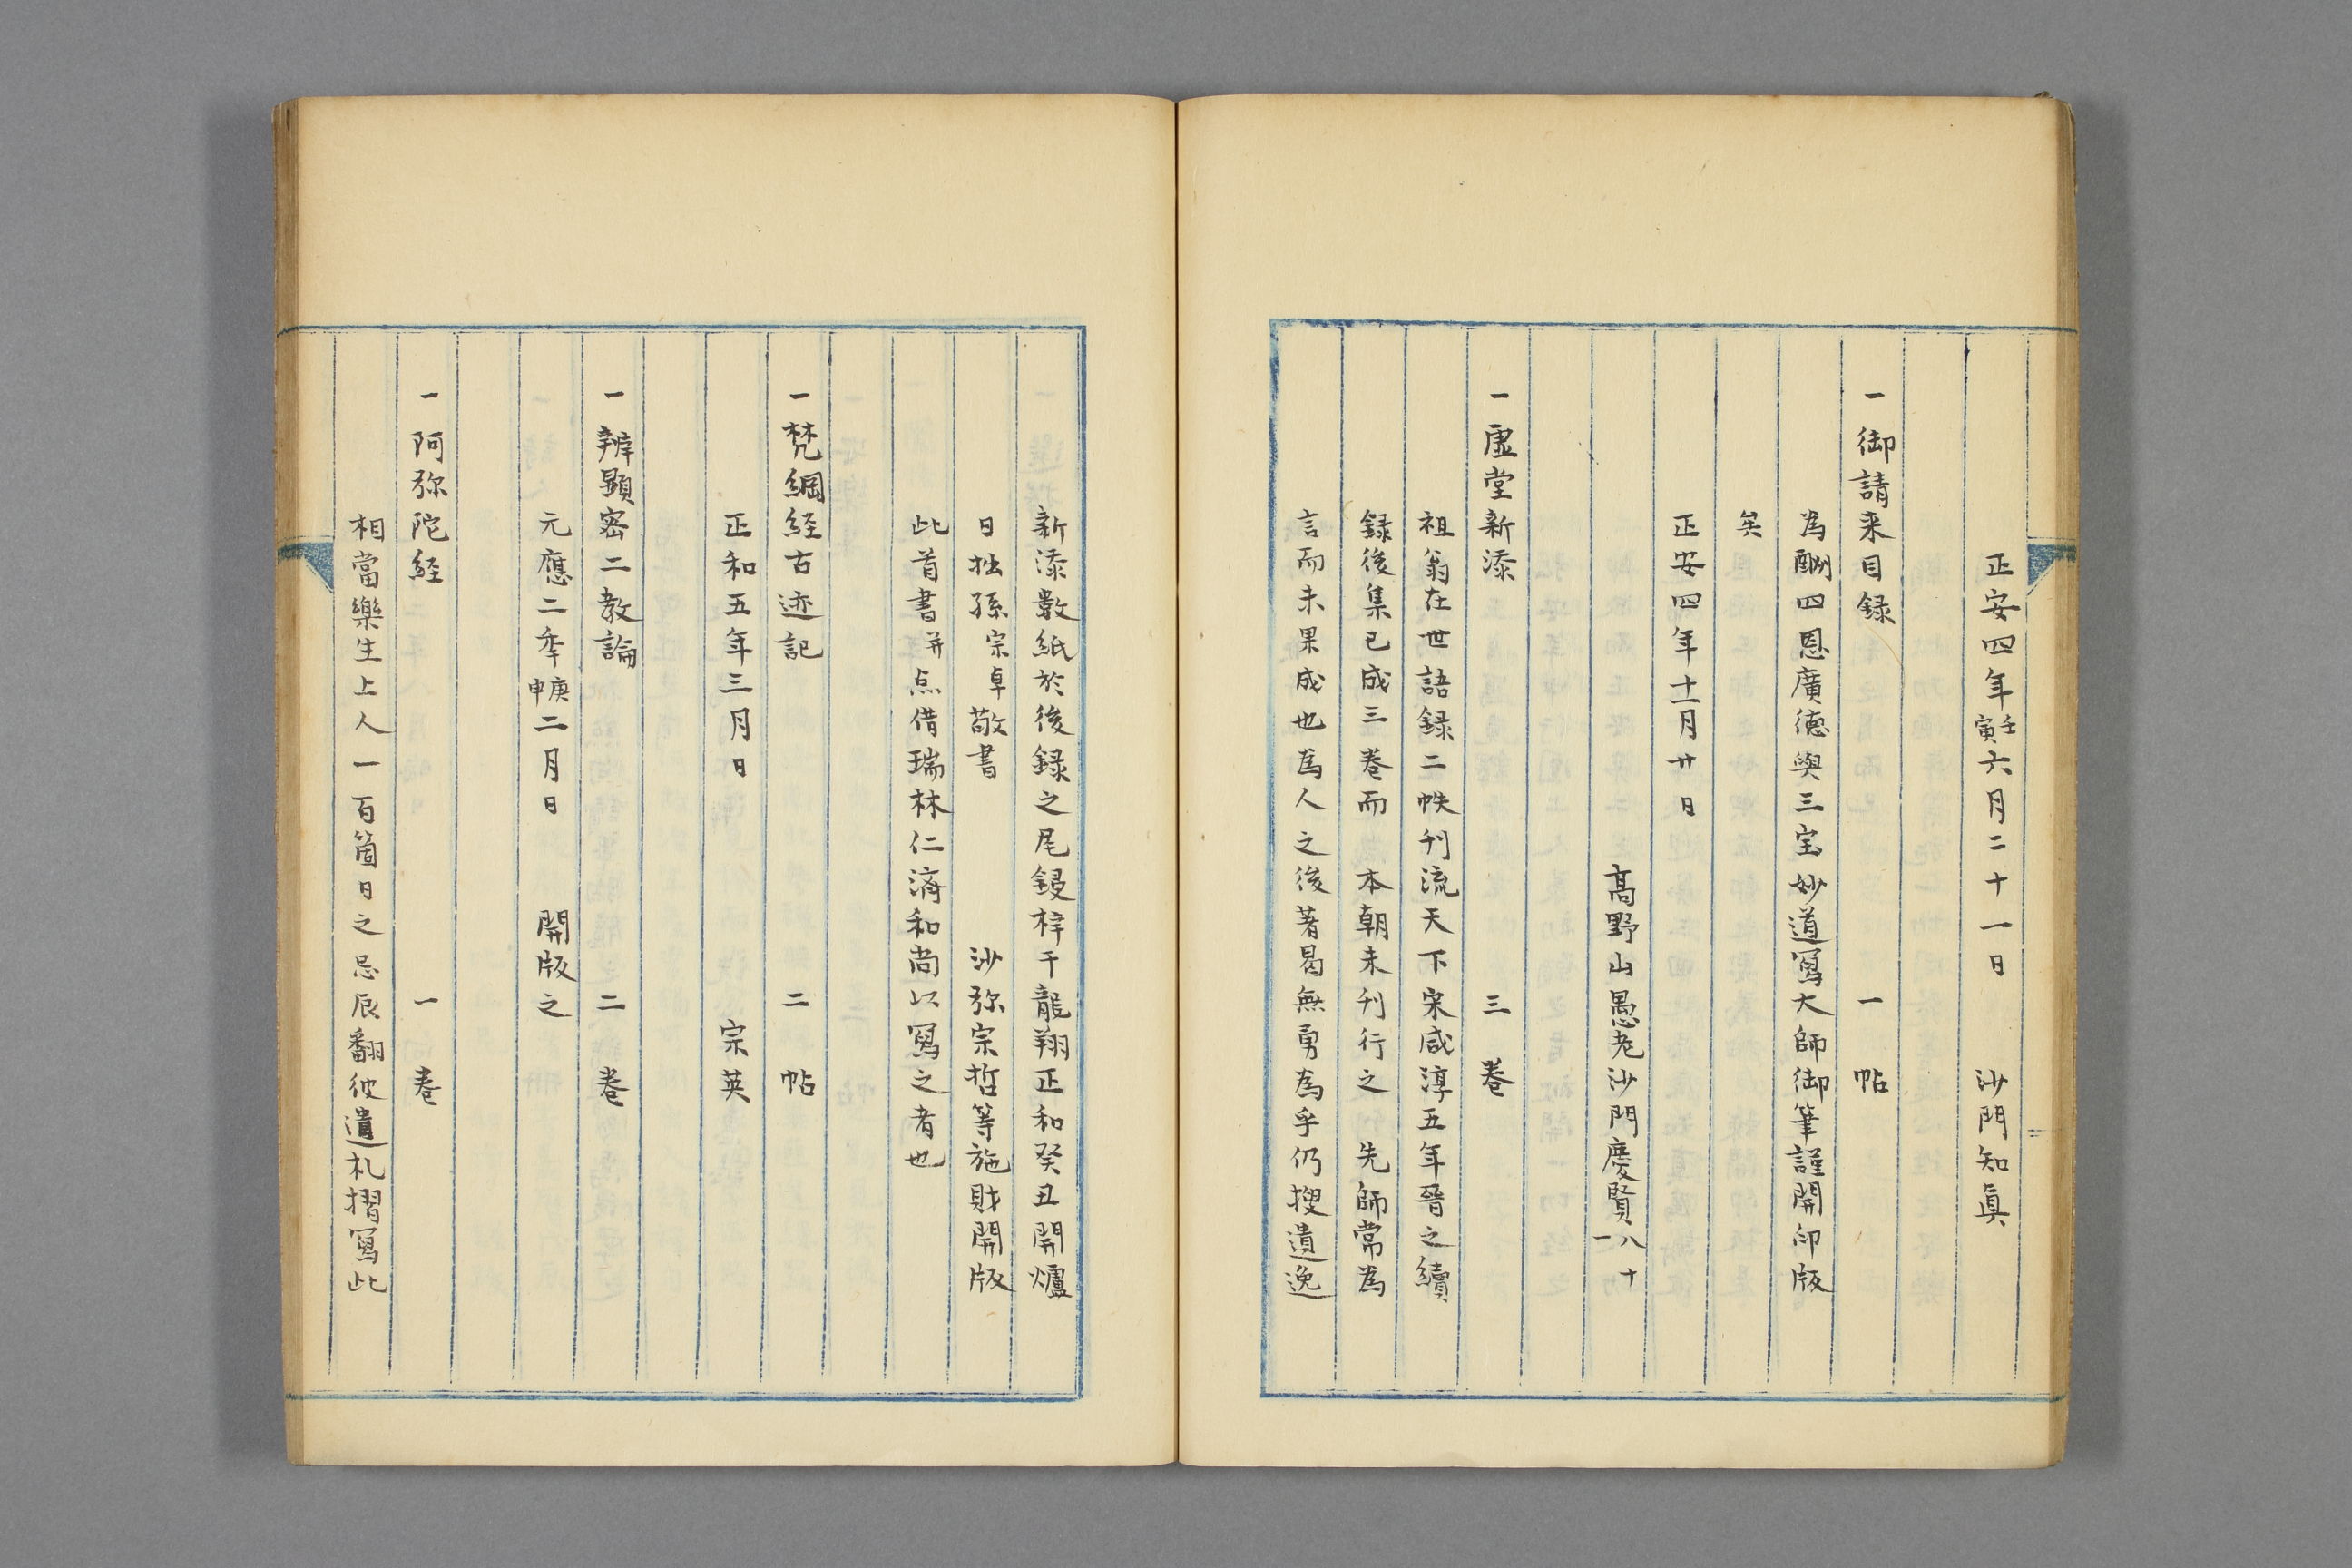 正安四年壬寅六月二十一日　沙門知真
一御請来目録　一帖
為酬四恩廣德與三宝妙道寫大師御筆謹開印版
矣
正安四年十一月廿日
髙野山愚老沙門慶賢八十一
一虚堂新添　三巻
祖翁在世語録二帙刊流天下宋咸淳五年晉之續
録後集已成三巻而　本朝未刊行之　先師常為
言而未果成也為人之後著曷無勇為乎仍搜遺逸
新添數紙於後録之尾鋟梓于龍翔正和癸丑開爐
日拙孫宗卓敬書　沙弥宗哲等施財開版
此首書并点借瑞林仁済和尚以寫之者也
一梵綱経古迹記　二帖
正和五年三月日　宗英
一辨顕密二教論　二巻
元應二年庚申二月日　開版之
一阿弥陀経　一巻
相當樂生上人一百箇日之忌辰翻彼遺札摺寫此